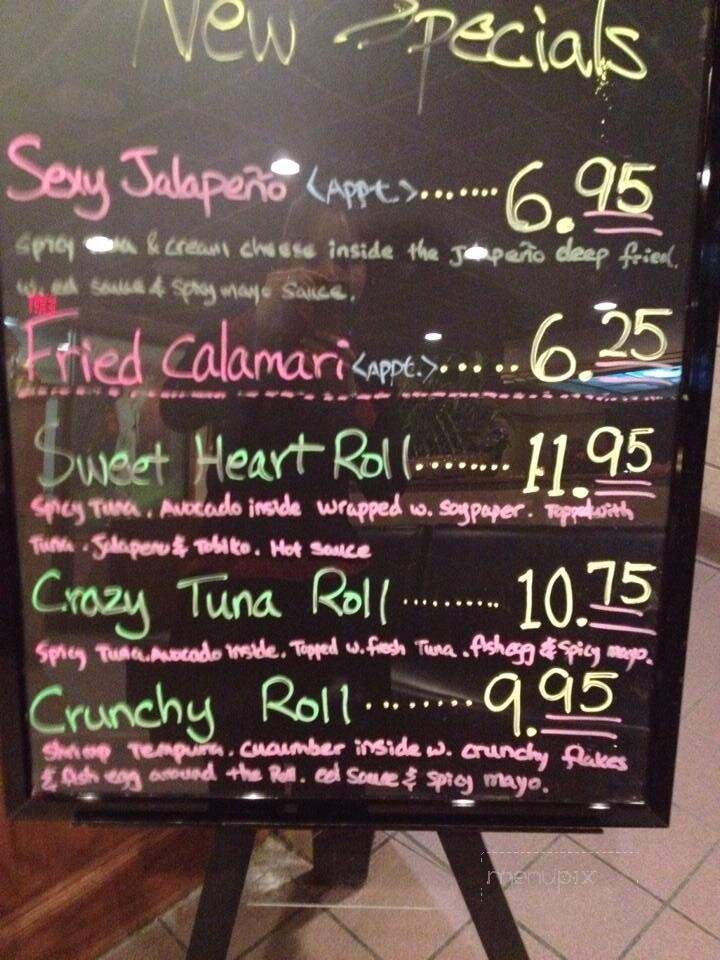 New Specials
Sexy Jalapeño <Appt.>....... 6.95
Spicy & cream cheese inside the Jalapeño deep fried.
w. eel sauce & Spicy mayo Sauce.
Fried Calamari <Appt.>..... 6.25
Sweet Heart Roll........ 11.95
Spicy Tuna. Avocado inside wrapped w. Soypaper. Topped with
Tuna. Jalapeno & Tobiko. Hot sauce
Crazy Tuna Roll.......... 10.75
Spicy Tuna. Avocado inside. Topped w. fresh Tuna. fish egg & Spicy mayo.
Crunchy Roll........ 9.95
Shrimp Tempura. Cucumber inside w. crunchy flakes
& fish egg around the Roll. eel Sauce & Spicy mayo.
menupix